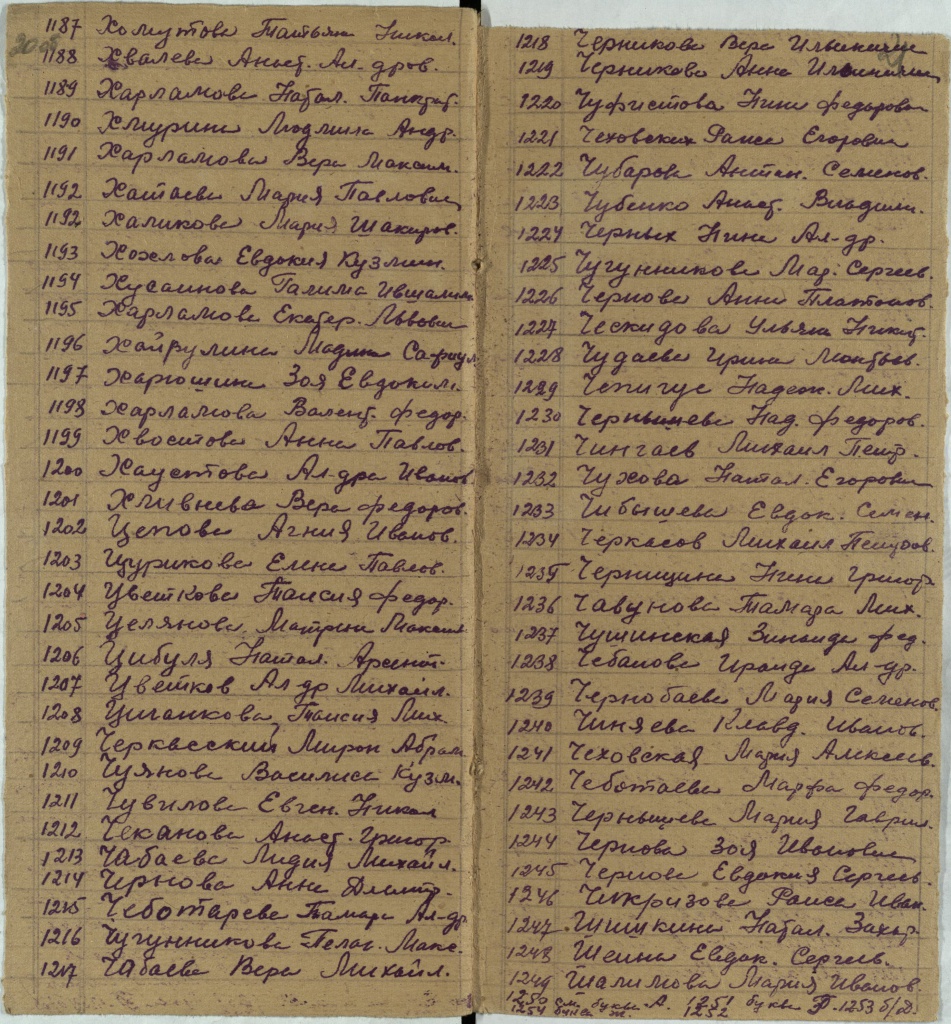 1187 Хомутова Татьяна Никол.
1188 Хвалева Анаст. Ал-дров.
1189 Харламова Натал. Панкрат.
1190 Хмурина Людмила Андр.
1191 Харламова Вера Максим.
1192 Хатаева Мария Павловн
1192 Халикова Мария Шакиров.
1193 Хохлова Евдокия Кузмин.
1194 Хусаинова Галима
1195 Харламова Екатер. Львовн
1196 Хайрулина Мадина
1197 Харюшина Зоя Евдоким.
1198 Харламова Валент. Федор.
1199 Хвостова Анна Павлов.
1200 Хаустова Ал-дра Иванов
1201 Хливнева Вера Федоров.
1202 Цепова Агния Иванов.
1203 Цурикова Елена Павлов.
1204 Цветкова Таисия Федор.
1205 Целянова Матрена Максим.
1206 Цибуля Натал. Арсент.
1207 Цветков Ал-др Михайл.
1208 Цыганкова Таисия Мих.
1209 Черкасский Мирон Абрам
1210 Чуянова Василиса Кузм.
1211 Чувилова Евген. Никол
1212 Чеканова Анаст. Григор
1213 Чабаева Лидия Михайл.
1214 Чернова Анна Дмитр.
1215 Чеботарева Тамара Ал-др
1216 Чугунникова Пелаг. Макс.
1217 Чабаева Вера Михайл.
1218 Черникова Вера Ильинична
1219 Черникова Анна Ильинична
1220 Чуфистова Нина Федоровн
1221 Чеховских Раиса Егоровн
1222 Чубарова Антон. Семенов.
1223 Чубенко Анаст. Владим.
1224 Черных Нина Ал-др.
1225 Чугунникова Мар. Сергеев.
1226 Чернова Анна Платонов.
1227 Ческидова Ульяна Никит.
1228 Чудаева Ирина Леонтьев.
1229 Чепигус Надеж. Мих.
1230 Чернышева Над. Федоров.
1231 Чингаев Михаил Петр.
1232 Чухова Натал. Егоровн
1233 Чибышева Евдок. Семен.
1234 Черкасов Михаил Петров.
1235 Чернищина Нина Григор
1236 Чавунова Тамара Мих.
1237 Чушинская Зинаида Фед.
1238 Чебанова Ираида Ал-др.
1239 Чернобаева Мария Семенов.
1240 Чиняева Клавд. Иванов.
1241 Чеховская Мария Алексеев.
1242 Чеботаева Марфа Федор.
1243 Чернышева Мария Гаврил.
1244 Чернова Зоя Ивановн
1245 Чернова Евдокия Сергеев.
1246 Чикризова Раиса Иван.
1247 Шишкина Натал. Захар.
1248 Шеина Евдок. Сергеев.
1249 Шалимова Мария Иванов.
1250 см. буква А. 1251 буква Т. 1253 б/Д.
1254 буква Ж. 1252